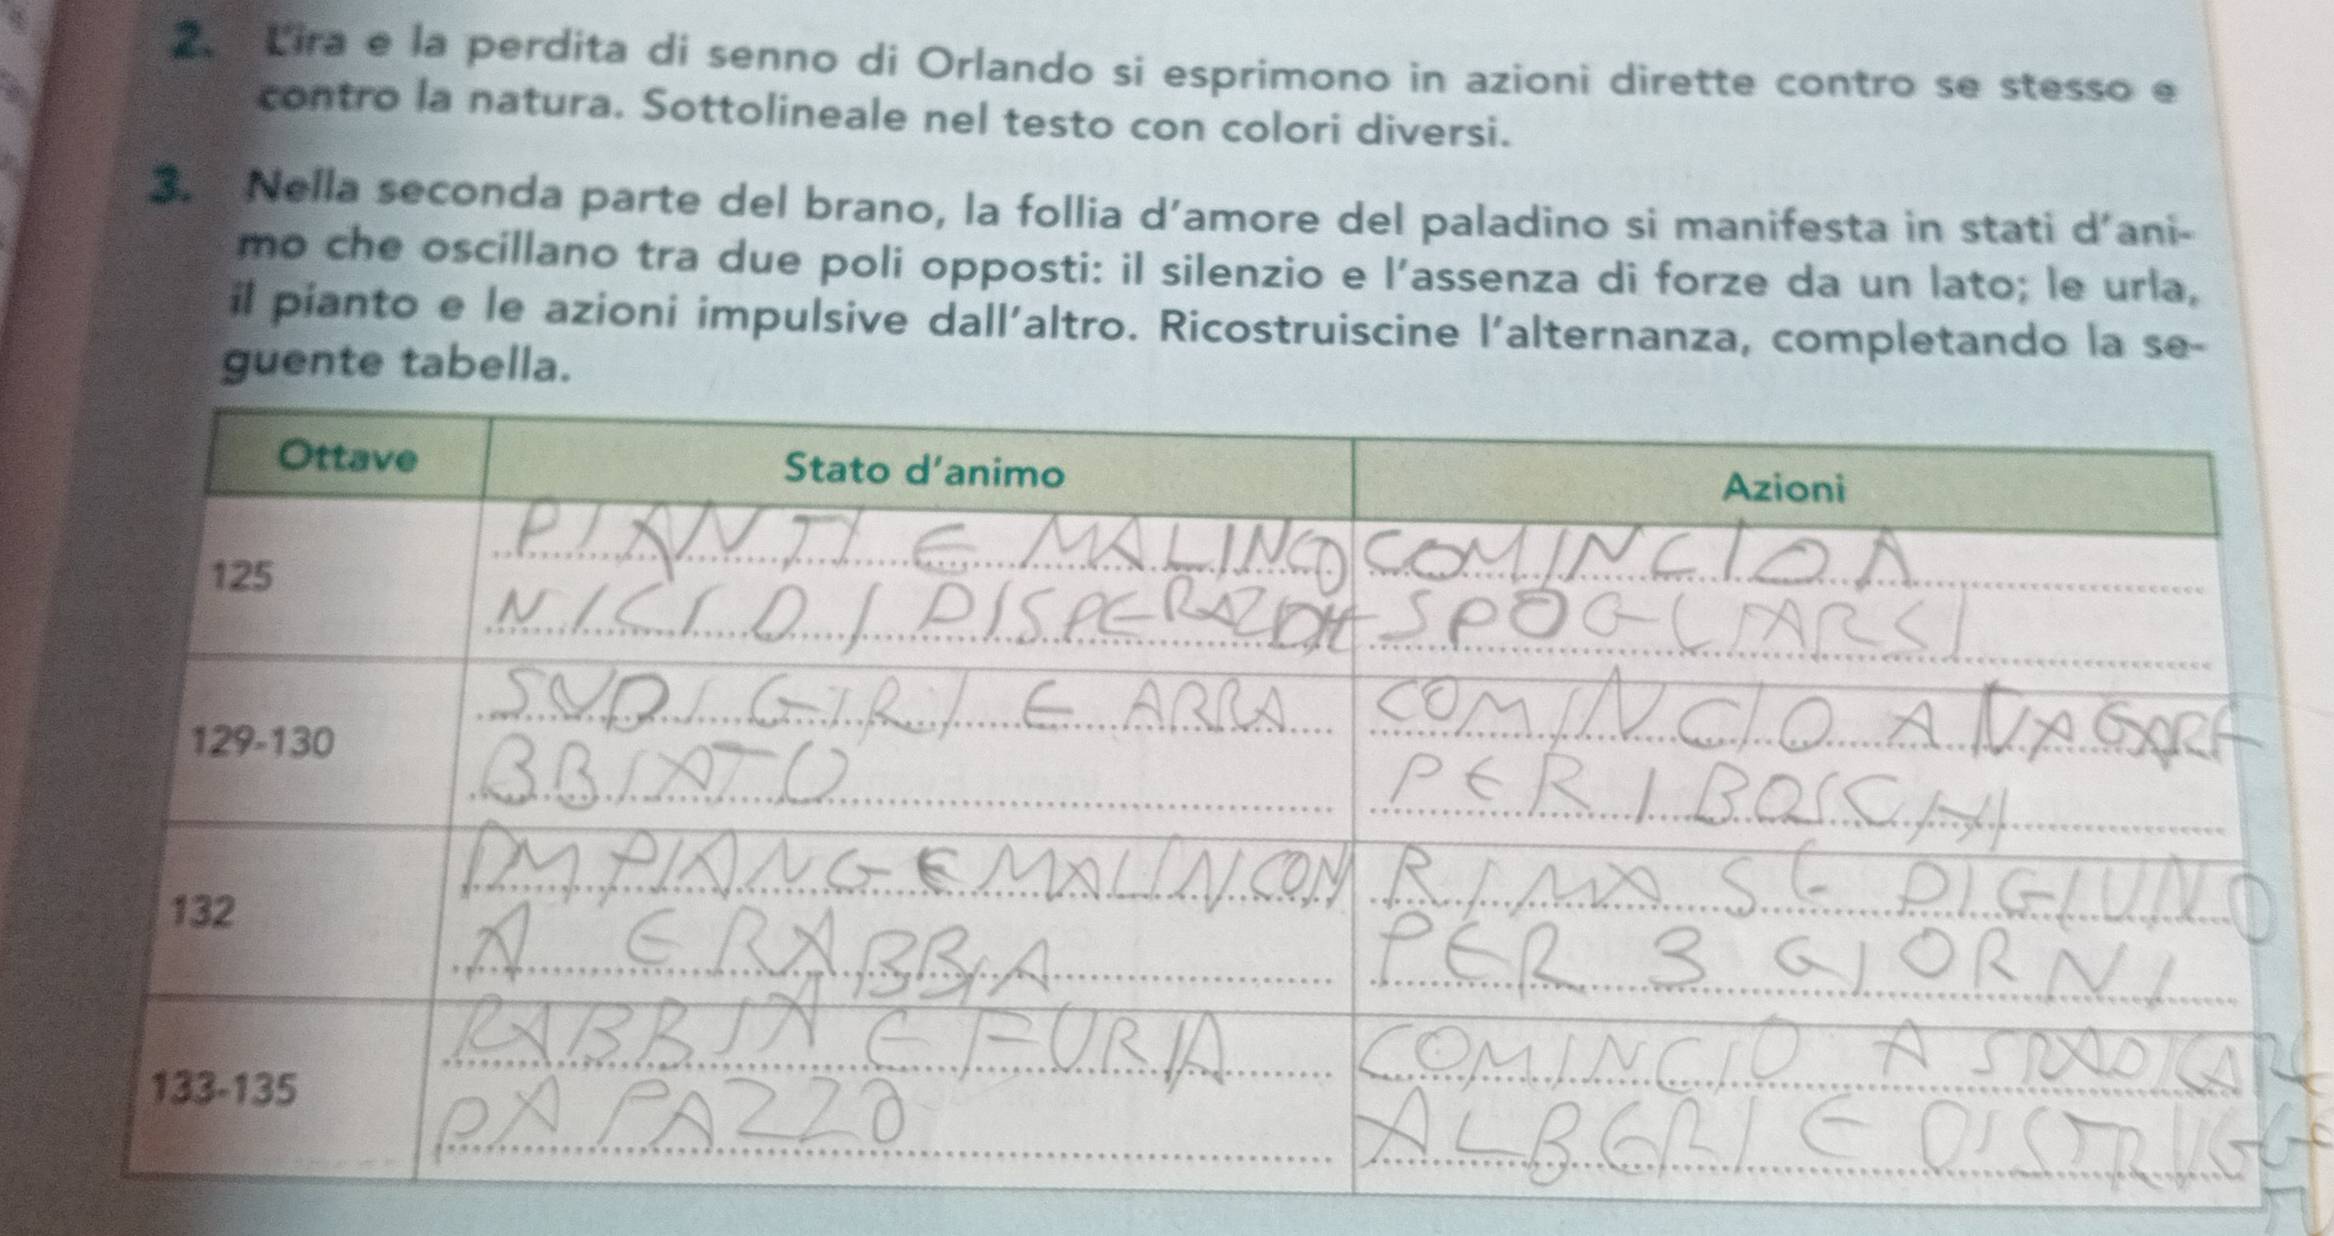 2. L'ira e la perdita di senno di Orlando si esprimono in azioni dirette contro se stesso e
contro la natura. Sottolineale nel testo con colori diversi.
3. Nella seconda parte del brano, la follia d'amore del paladino si manifesta in stati d'ani-
mo che oscillano tra due poli opposti: il silenzio e l'assenza di forze da un lato; le urla,
il pianto e le azioni impulsive dall'altro. Ricostruiscine l'alternanza, completando la se-
guente tabella.
Ottave
Stato d'animo
Azioni
125
PIANTI E MALINCO
NICI DI
COMINCIO A
SPOGLIARSI
129-130
GIRI E ARRA
BBIATO
COMINCIO A VAGARE
PER I BOSCHI
132
PIANGE MALINCONI
A E RABBIA
RIMASE DIGIUNO
PER 3 GIORNI
133-135
RABBIA E FURIA
DA PAZZO
COMINCIO A SRADICARE
ALBERI E DISTRUGGE